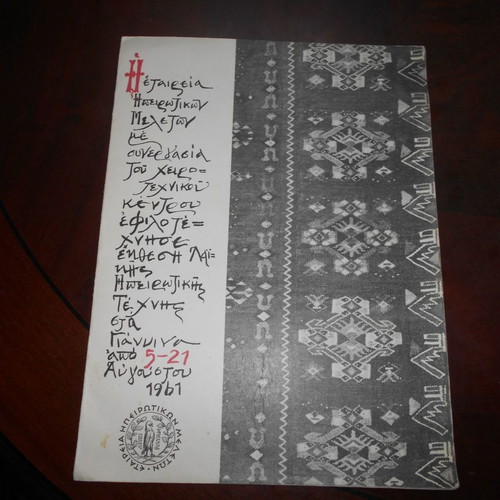 Ἡ ἑταιρεία
Ἠπειρωτικῶν
Μελετῶν
μὲ
συνεργασία
τοῦ χειρο-
τεχνικοῦ
κέντρου
ἐφιλοτέ=
χνησε
ἔκθεση Λαϊ-
κῆς
Ἠπειρωτικῆς
Τέχνης
στὰ
Γιάννινα
ἀπὸ 5-21
Αὐγούστου
1961
ΕΤΑΙΡΕΙΑ ΗΠΕΙΡΩΤΙΚΩΝ ΜΕΛΕΤΩΝ